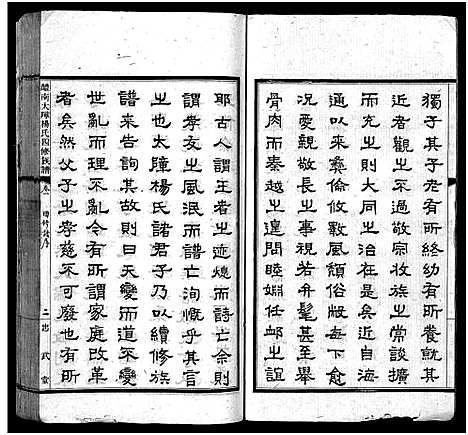 獨子其子老有所終幼有所養就其
近者觀之為敬宗收族之常談擴
而充之治天下無不足矣近自海
通以來彝倫攸斁風頹俗敗下愈
況愛親敬長之事視若弁髦甚至舉
骨肉而秦越之遑問睦婣任卹之誼
耶古人謂王者之迹熄而詩亡余則
謂孝友之風泯而譜亡洵慨乎其言
之也大障楊氏諸君子乃以續修族
譜來告詢其故則曰天變而道不變
世亂而理不亂今有所謂家庭改革
者矣然父子之孝慈不可廢也有所
醴南大障楊氏四修族譜 卷一 四修譜序 二 忠武堂